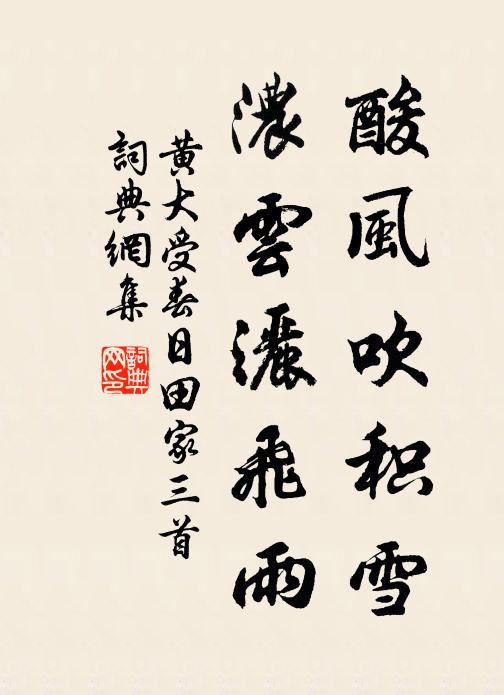 酸風吹积雪
濃雲灑飛雨
黄大受春日田家三首
詞典網集
詞典
网印